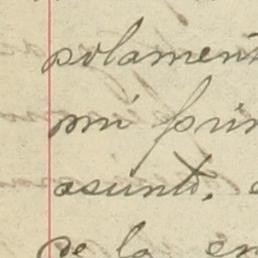 solament
mi prin
asunto.
de la en